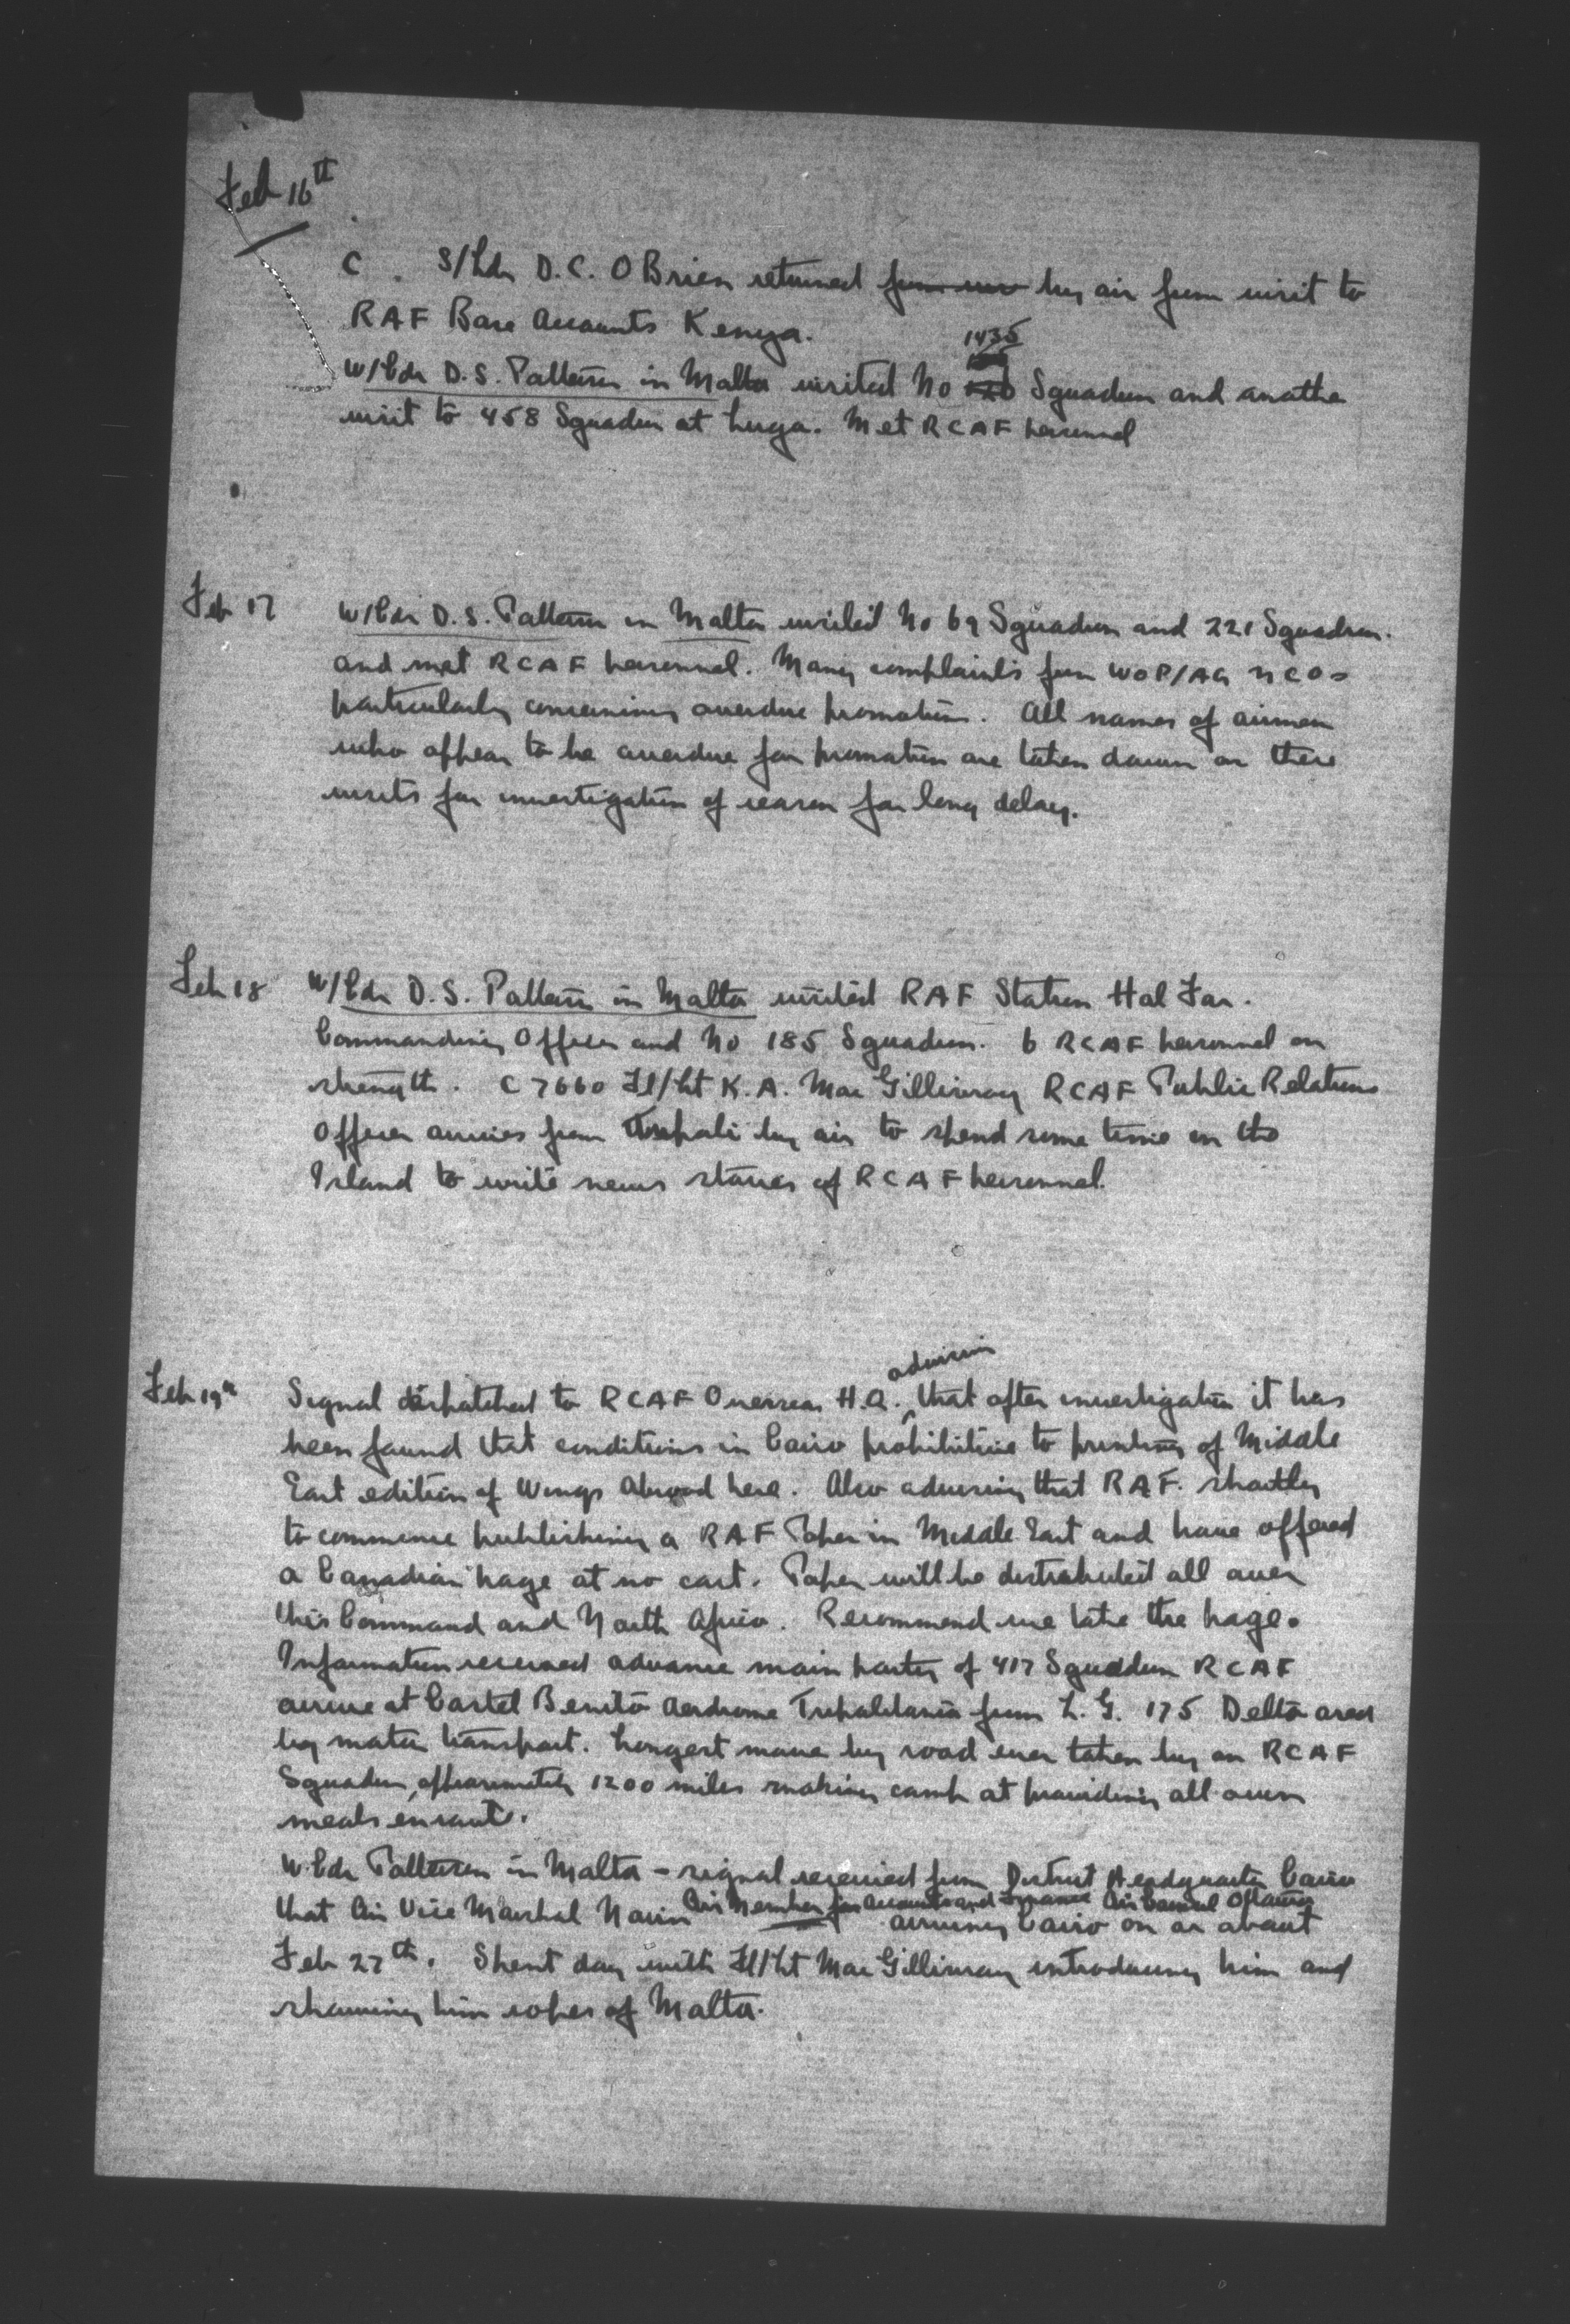 Feb 16th
C. S/Ldr D.C. O Brien returned by air from visit to
RAF Base Accounts Kenya.
1435
W/Cdr D.S. Patterson in Malta visited No Squadron and another
visit to 458 Squadron at Luqa. Met RCAF personnel
Feb 17 W/Cdr D.S. Patterson in Malta visited No 69 Squadron and 221 Squadron.
and met RCAF personnel. Many complaints from WOP/AG NCOs
particularly concerning overdue promotions. All names of airmen
who appear to be overdue for promotion are taken down on these
visits for investigation of reason for long delay.
Feb 18 W/Cdr D.S. Patterson in Malta visited RAF Station Hal Far.
Commanding Officer and No 185 Squadron. 6 RCAF personnel on
strength. C7660 Fl/Lt K.A. MacGillivray RCAF Public Relations
Officer arrives from Tripoli by air to spend some time on the
Island to write news stories of RCAF personnel.
advising
Feb 19th Signal dispatched to RCAF Overseas H.Q. that after investigation it has
been found that conditions in Cairo prohibitive to printing of Middle
East edition of Wings Abroad here. Also advising that RAF. shortly
to commence publishing a RAF Paper in Middle East and have offered
a Canadian page at no cost. Paper will be distributed all over
this Command and North Africa. Recommend we take the page.
Information received advance main party of 417 Squadron RCAF
arrive at Castel Benito Aerdrome Tripolitania from L.G. 175 Delta area
by motor transport. Longest move by road ever taken by an RCAF
Squadron, approximately 1200 miles making camp at providing all own
meals enroute.
W.Cdr Patterson in Malta - signal received from District Headquarters Cairo
that Air Vice Marshal Air Member for Accounts and Finance Air Council Ottawa arriving Cairo on or about
Feb 27th. Spent day with Fl/Lt MacGillivray introducing him and
showing him ropes of Malta.